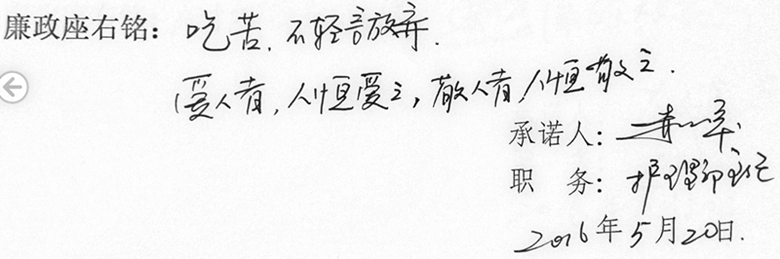 廉政座右铭：吃苦、不轻言放弃.
爱人者，人恒爱之，敬人者，人恒敬之.
承诺人：
职 务：护理部主任
2016年5月20日.